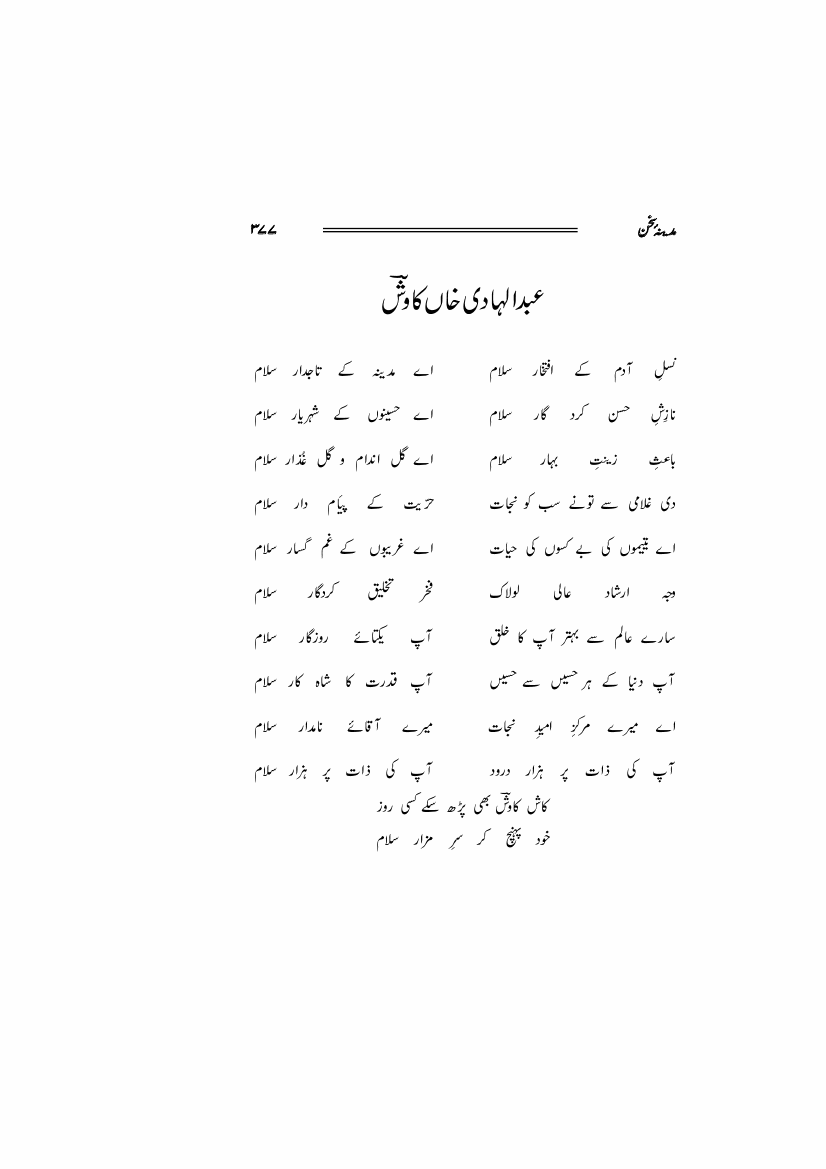 مدینہ سخن ۳۷۷
عبدالہادی خاں کاوشؔ
نسلِ آدم کے افتخار سلام اے مدینہ کے تاجدار سلام
نازشِ حسن کرد گار سلام اے حسینوں کے شہریار سلام
باعثِ زینتِ بہار سلام اے گل اندام و گل عُذار سلام
دی غلامی سے تونے سب کو نجات حریت کے پیام دار سلام
اے یتیموں کی بے کسوں کی حیات اے غریبوں کے غم گسار سلام
وجہ ارشاد عالی لولاک فخر تخلیق کردگار سلام
سارے عالم سے بہتر آپ کا خلق آپ یکتائے روزگار سلام
آپ دنیا کے ہر حسیں سے حسیں آپ قدرت کا شاہ کار سلام
اے میرے مرکزِ امیدِ نجات میرے آقائے نامدار سلام
آپ کی ذات پر ہزار درود آپ کی ذات پر ہزار سلام
کاش کاوشؔ بھی پڑھ سکے کسی روز
خود پہنچ کر سرِ مزار سلام